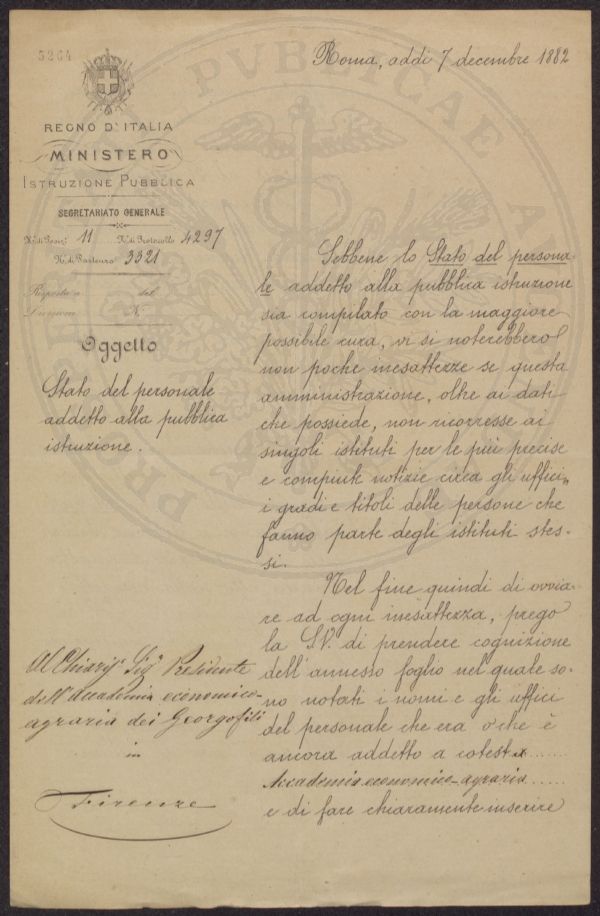 5264
Roma, addì 7 decembre 1882
REGNO D'ITALIA
MINISTERO
ISTRUZIONE PUBBLICA
SEGRETARIATO GENERALE
N.º di Posiz.e 11 N.º di Protocollo 4297
N.º di Partenza 3321
Risposta a del
Divisione N.
Oggetto
Stato del personale
addetto alla pubblica
istruzione.
Sebbene lo Stato del persona-
le addetto alla pubblica istruzione
sia compilato con la maggiore
possibile cura, vi si noterebbero
non poche inesattezze se questa
amministrazione, oltre ai dati
che possiede, non ricorresse ai
singoli istituti per le più precise
e compiute notizie circa gli uffici,
i gradi e titoli delle persone che
fanno parte degli istituti stes-
si.
Nel fine quindi di ovvia-
re ad ogni inesattezza, prego
la S.V. di prendere cognizione
dell'annesso foglio nel quale so-
no notati i nomi e gli uffici
del personale che era o che è
ancora addetto a cotesta
Accademia economico-agraria
e di fare chiaramente inserire
Al Chiar.º Sig.r Presidente
dell'Accademia economico-
agraria dei Georgofili
in
Firenze
PUBLICAE